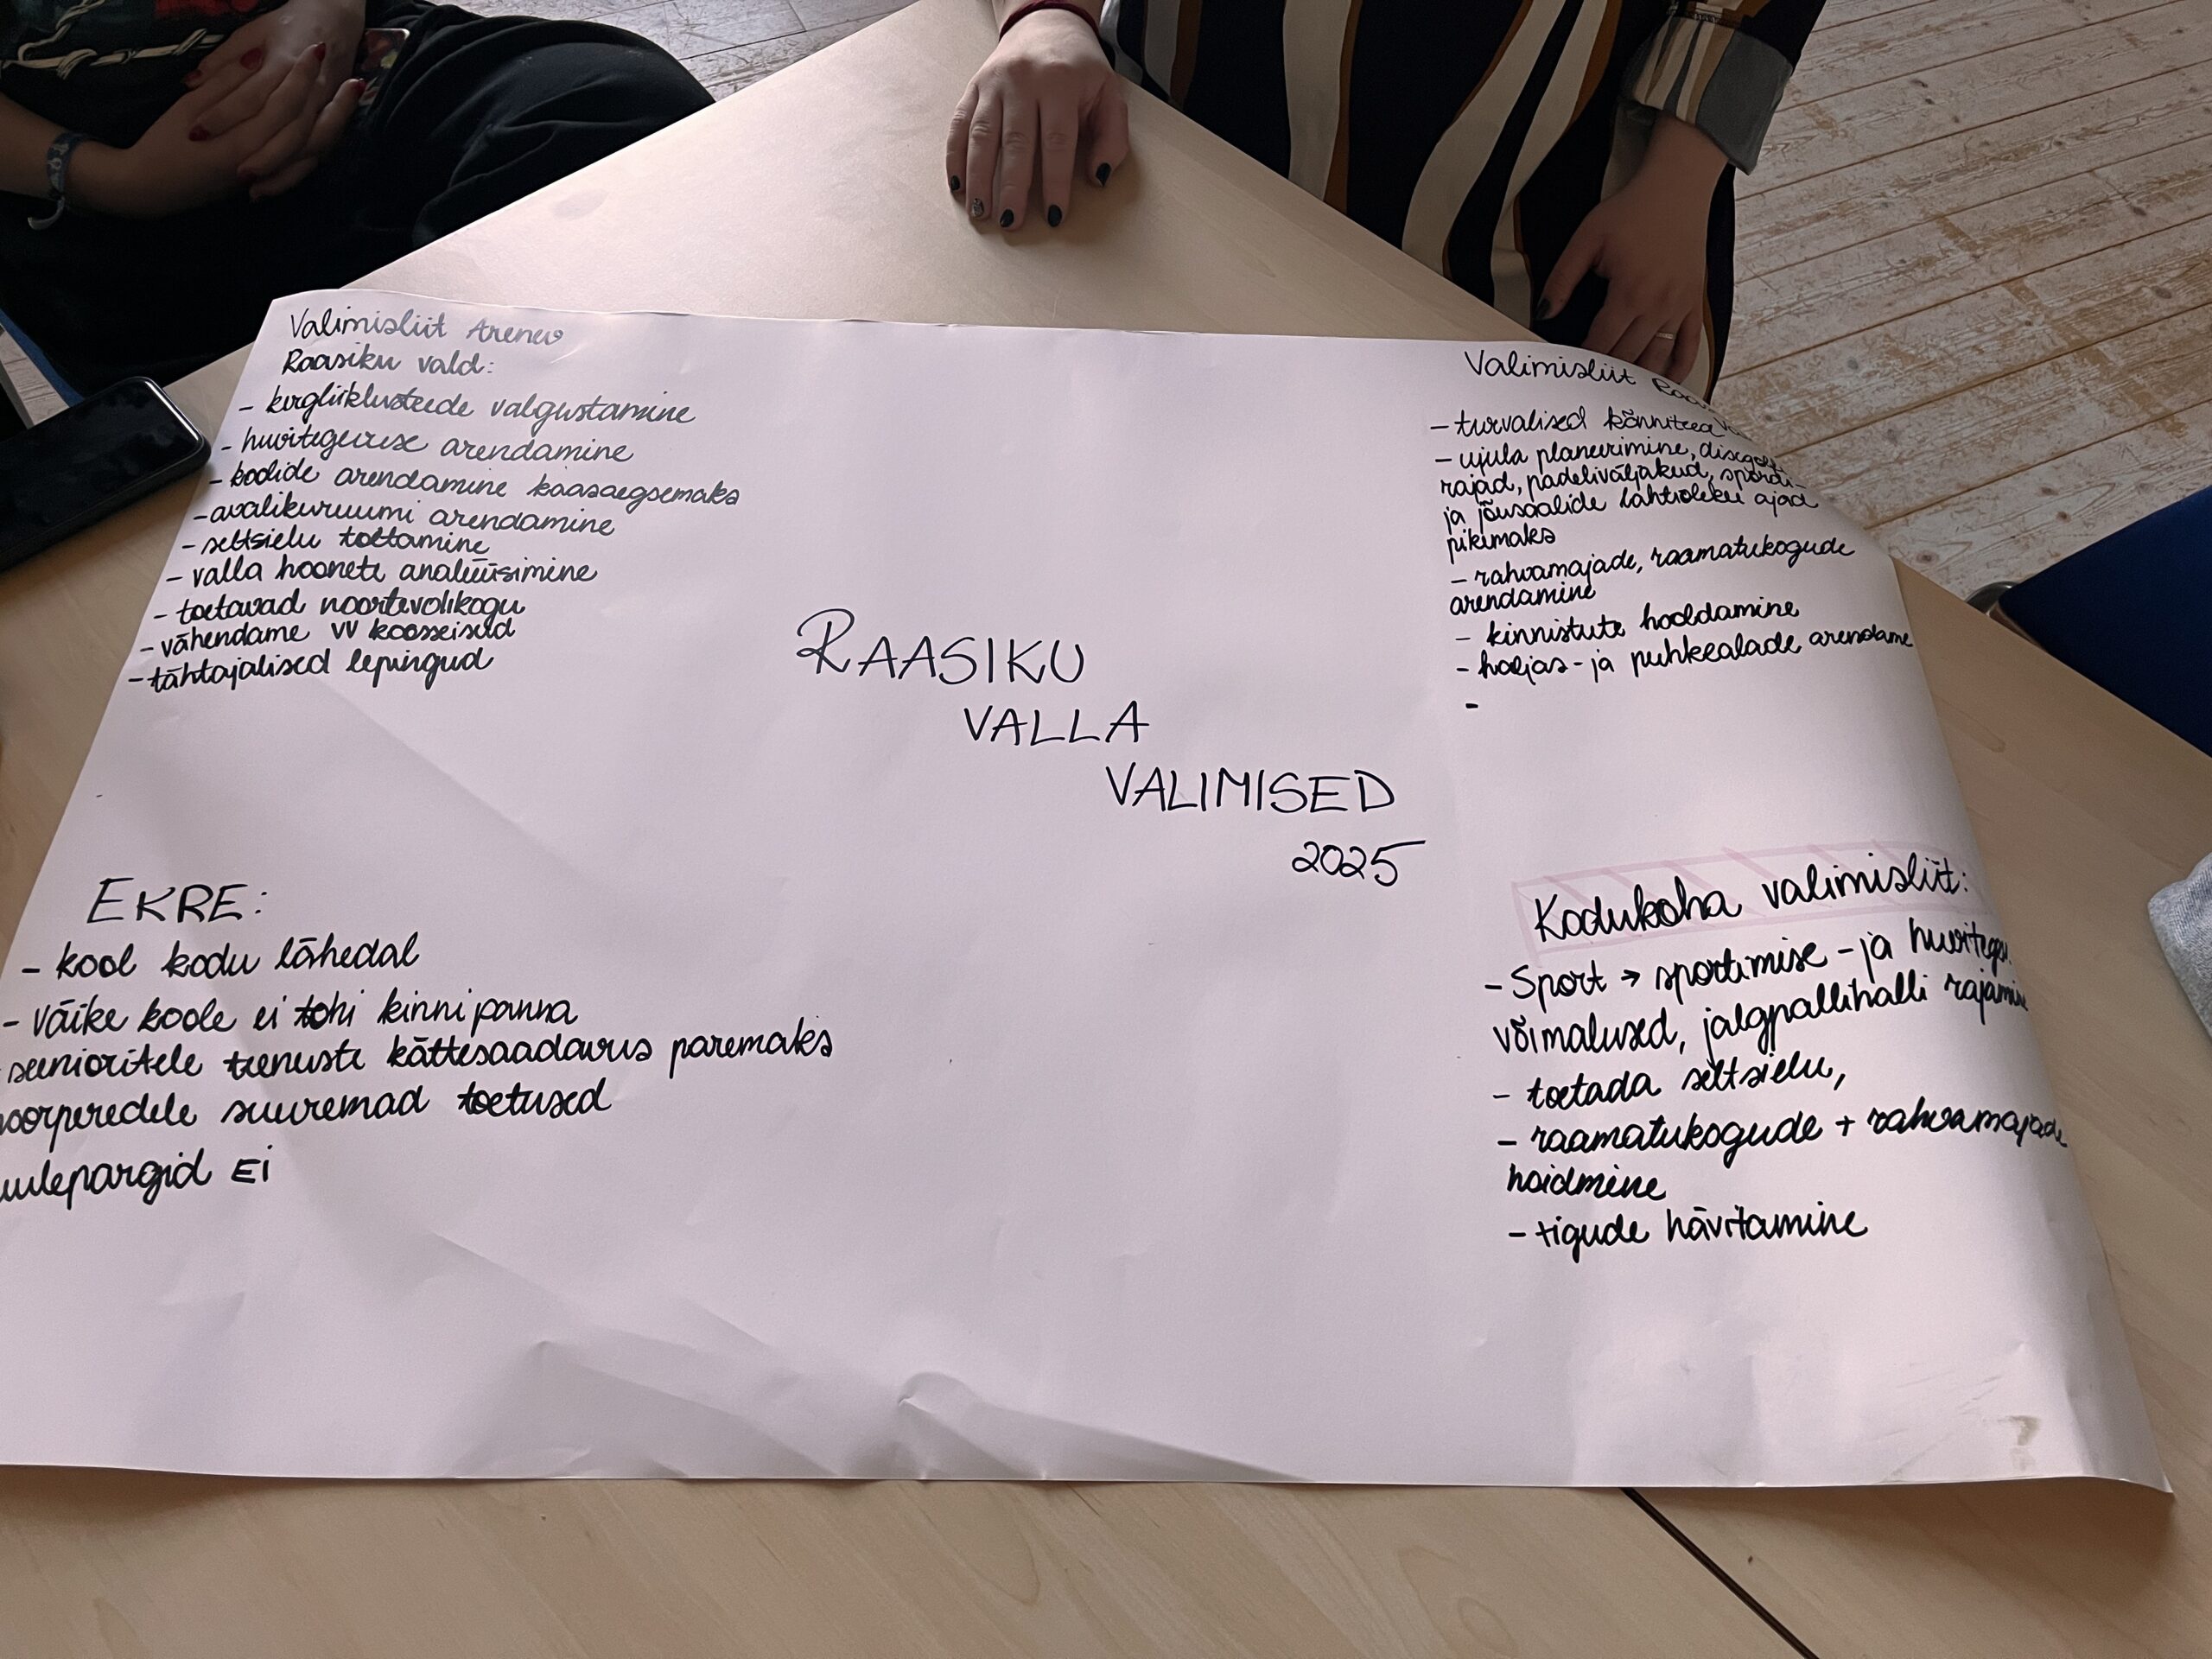 Valimisliit Arenev
Raasiku vald:
- kergliiklusteede valgustamine
- huvitegevuse arendamine
- koolide arendamine kaasaegsemaks
- avalikuruumi arendamine
- seltsielu toetamine
- valla hoonete analüüsimine
- toetavad noortevolikogu
- vähendame VV koosseisud
- tähtajalised lepingud
Valimisliit
- turvalised kõnniteed
- ujula planeerimine,
rajad, padeliväljakud, spordi-
ja jõusaalide lahtioleku ajad
pikemaks
- rahvamajade, raamatukogude
arendamine
- kinnistute hooldamine
- haljas- ja puhkealade arendame
-
RAASIKU
VALLA
VALIMISED
2025
EKRE:
- kool kodu lähedal
- väike koole ei tohi kinni panna
seenioritele teenuste kättesaadavus paremaks
noorperedele suuremad toetused
tuulepargid EI
Kodukoha valimisliit:
- Sport → sportimise - ja
võimalused, jalgpallihalli rajamine
- toetada seltsielu,
- raamatukogude + rahvamajade
hoidmine
- tigude hävitamine